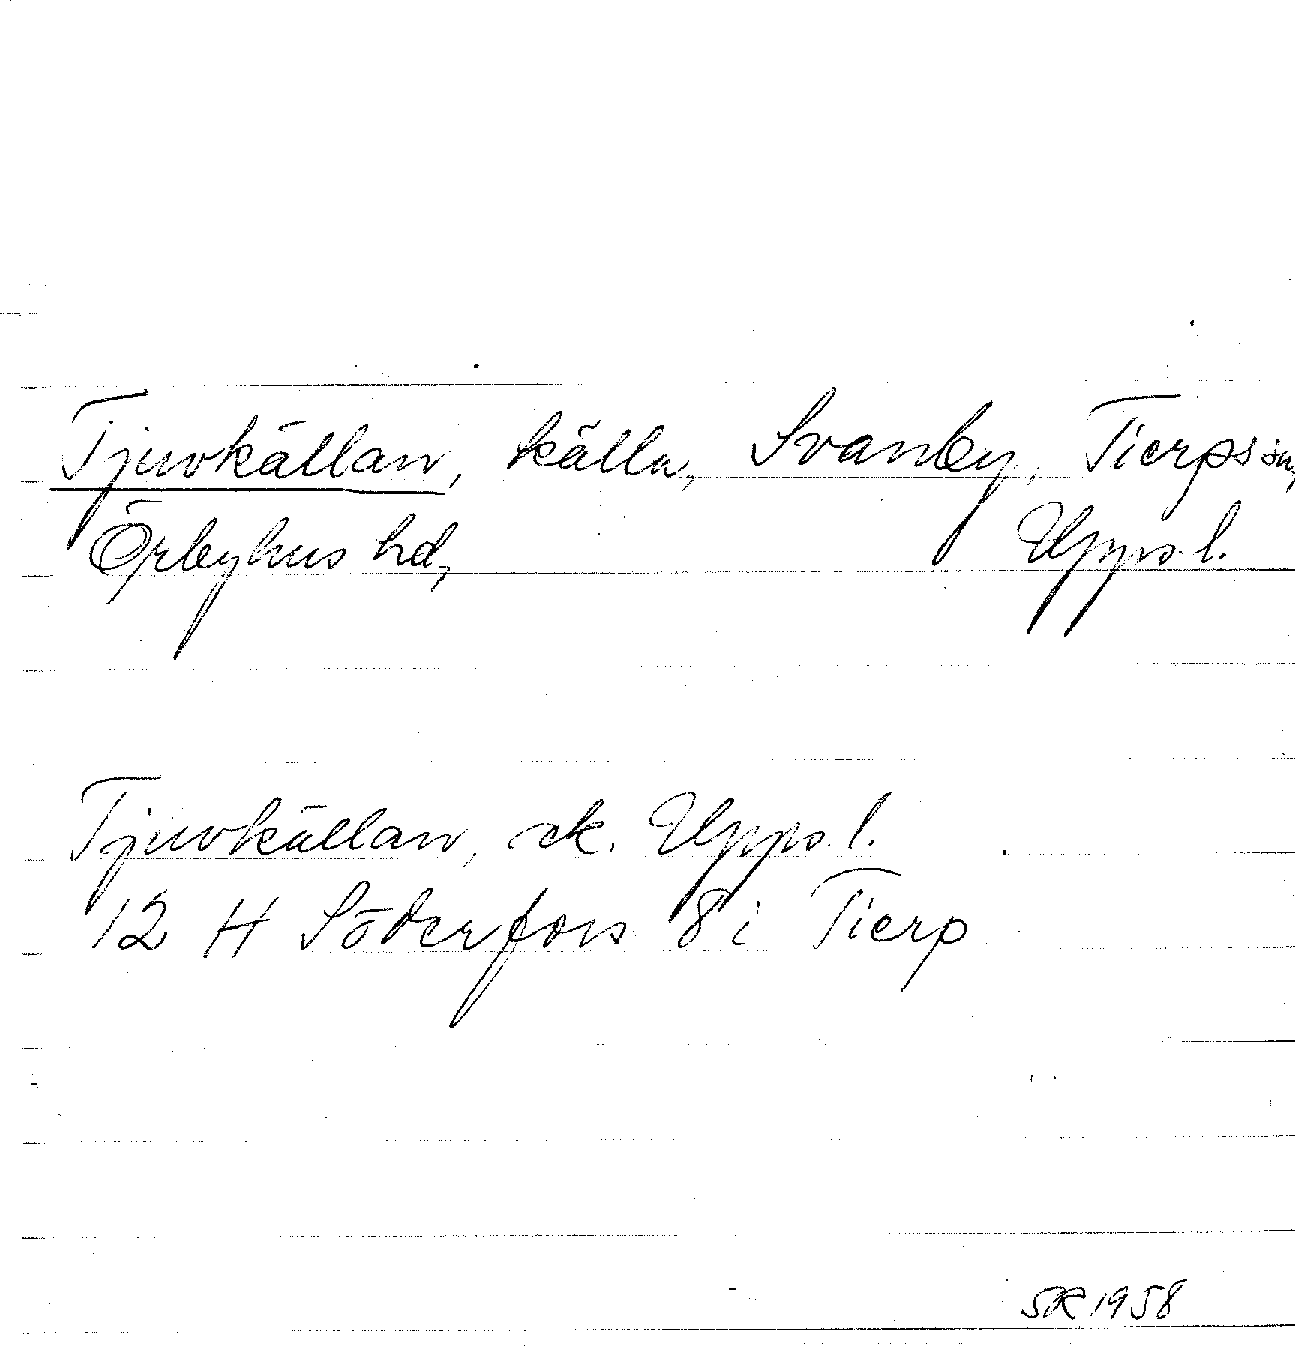 Tjuvkällan, källa, Svanby, Tierps sn,
Örbyhus hd, Upps. l.
Tjuvkällan, ek. Upps. l.
12 H Söderfors 8 i Tierp
SR 1958